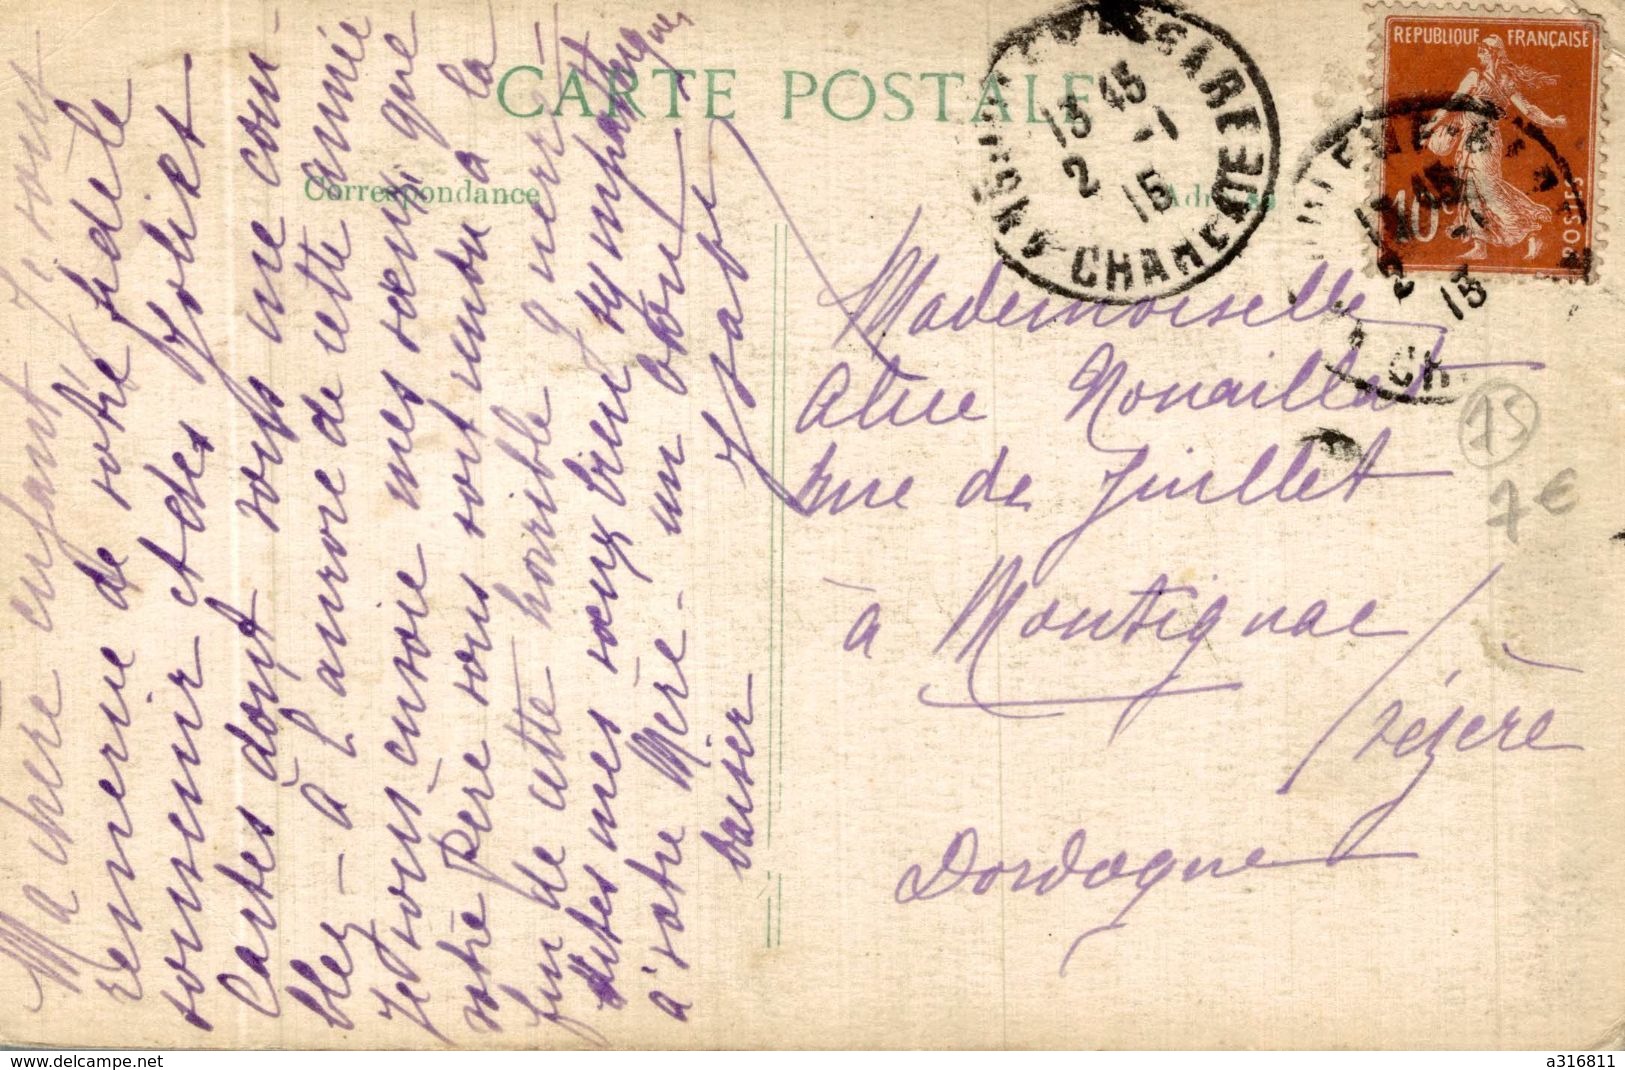 CARTE POSTALE
Correspondance
Ma chère enfant, Je vous
remercie de votre fidèle
souvenir et des jolies
Cartes dont vous me com-
blez - à l'aurore de cette année
Je vous envoie mes vœux que
votre Père vous soit rendu à la
fin de cette horrible guerre
mes vœux bien sympathiques
à votre Mère - un bon
baiser
GARE
13 45
2 -1
15
REPUBLIQUE FRANÇAISE
10c
POSTES
45
2 -1
15
Mademoiselle
Alice Nouaillat
rue de Juillet
à Montignac
/Vézère
Dordogne
15
7€
delcampe.net
a316811